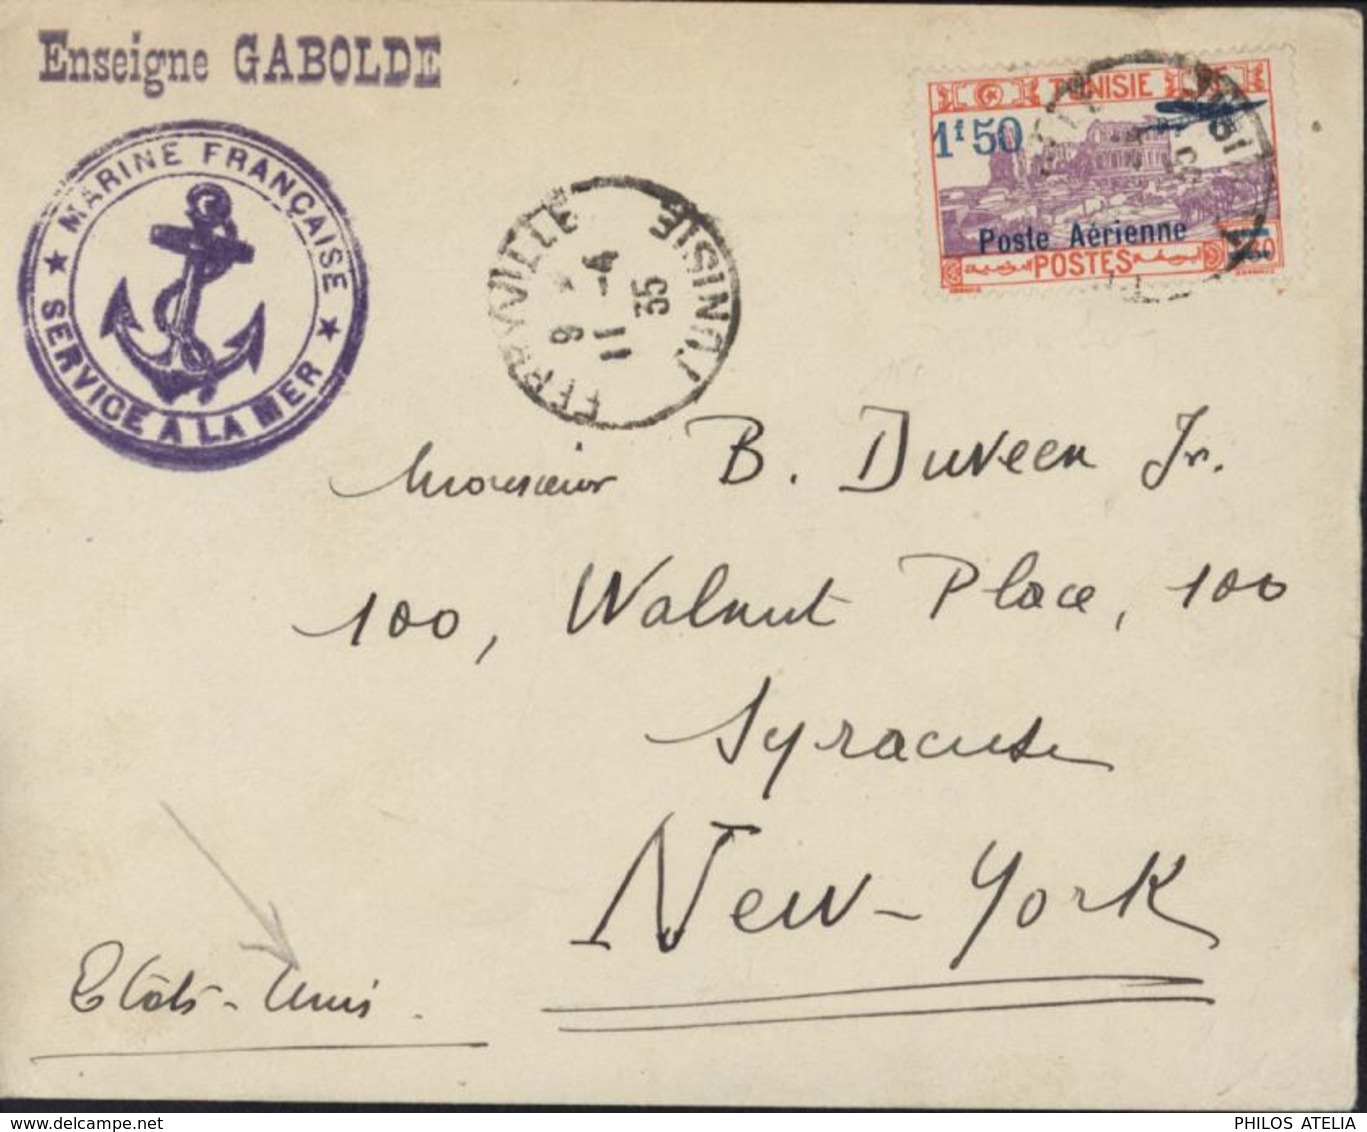 Enseigne GABOLDE
MARINE FRANÇAISE
★ SERVICE A LA MER ★
FERRYVILLE TUNISIE
11-4
35
TUNISIE
1f50
Poste Aérienne
POSTES
Monsieur B. Duveen Jr.
100, Walnut Place, 100
Syracuse
New-York
Etats-Unis.
PHILOS ATELIA